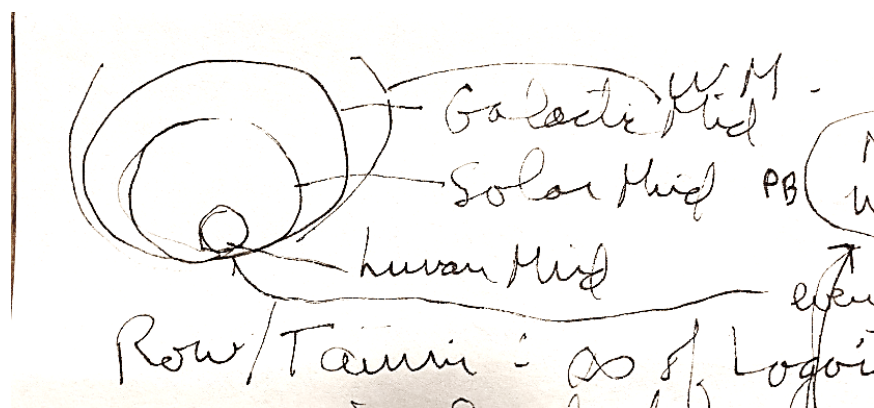 W.M.
Galactic Mind
Solar Mind PB
human Mind
Row/Tainui : ∞ of Logoi